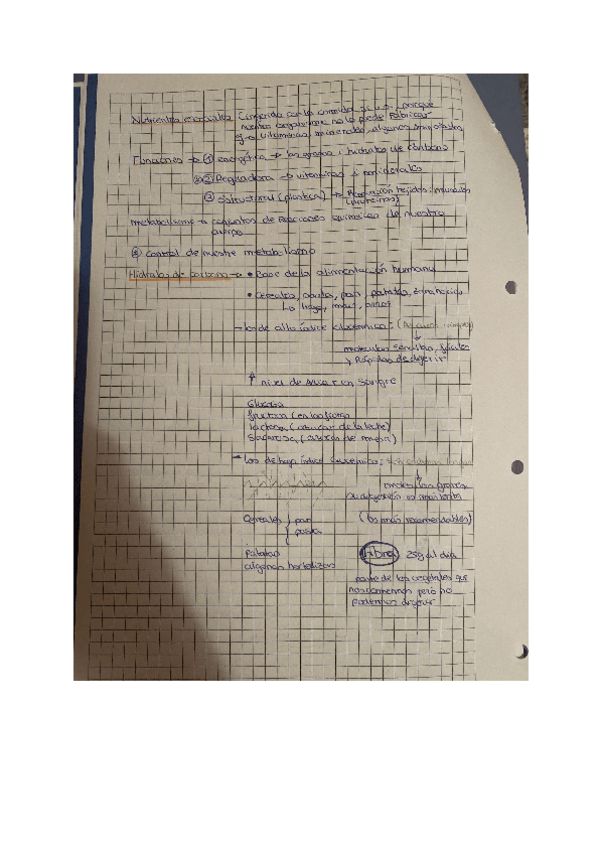 Nutrientes esenciales (ingerida con la comida si o si, porque
nuestro organismo no lo puede fabricar
ej → vitaminas, minerales, algunos aminoácidos
Funciones → ① energética → las grasas e hidratos de carbono
② Reguladora → vitaminas y minerales
③ estructural (plástica) → Reparación tejidos: músculos
(proteínas)
metabolismo → conjuntos de Reacciones químicas de nuestro
cuerpo
control de nuestro metabolismo
Hidratos de carbono → • Base de la alimentación humana
• Cereales, pastas, pan, patatas, arroz
Lo trigo, maíz, arroz
→ los de alto índice glucémico:
moleculas sencillas, fáciles
y Rápidas de digerir
↑ nivel de azúcar en sangre
Glucosa
fructosa (en las frutas
lactosa (azucar de la leche)
Sacarosa, (azúcar de mesa)
→ los de bajo índice glucémico:
moléculas grandes
su digestión es más lenta
Cereales } pan (los más recomendables)
{ pasta
Patatas Fibra 25g al dia
algunas hortalizas
parte de los vegetales que
nos comemos pero no
podemos digerir